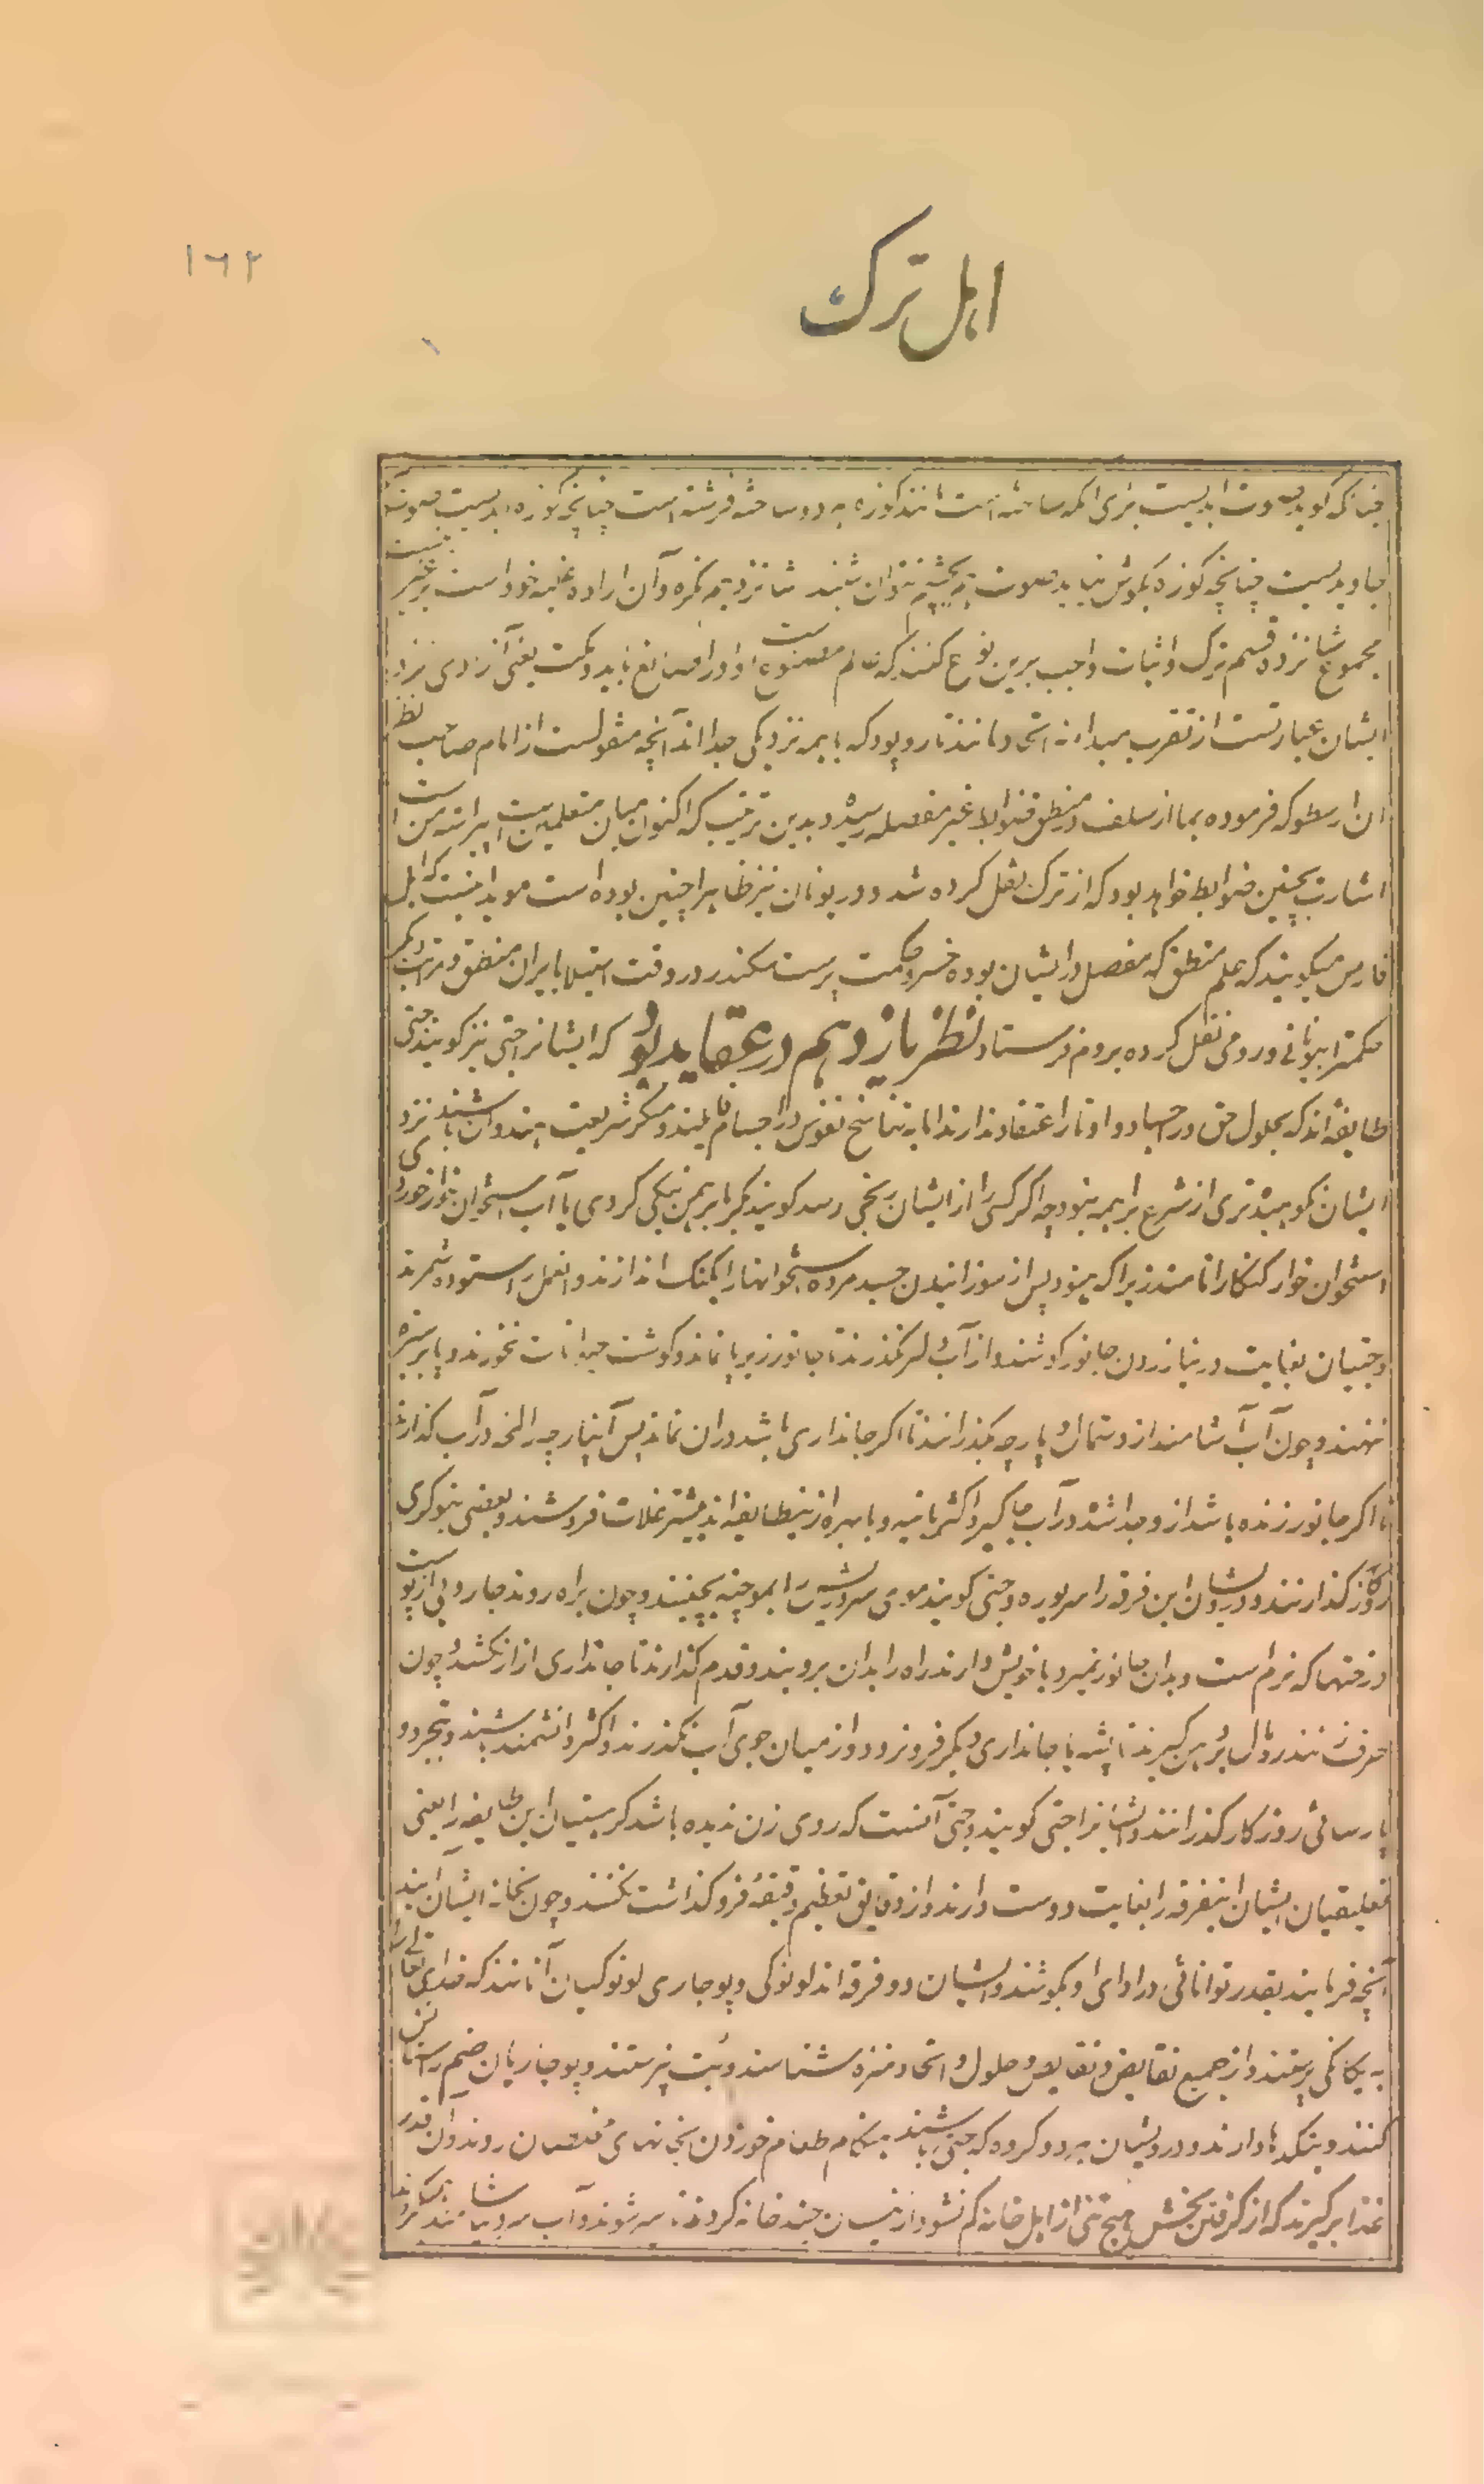 ۱۶۲
اهل ترک
چنانکه گوید صوت ابدیست برای آنکه ساخته است مانند کوزه دوم ساخته فرشته است چنانچه کوزه ابدیست صوت
جاوید نیست چنانچه کوزه بگوش نیاید صوت بچشم نتوان شنید شانزدهم نکره و آن اراده غلبه خود است بر غیر
مجموع شانزده قسم ترک و اثبات واجب برین نوع کنند که عالم مصنوع است او را صانع باید و مکت یعنی آزادی نزد
ایشان عبارتست از تقرب مبدا نه اتحاد مانند تار و پود که با همه نزدیکی جدا اند آنچه منقولست از امام صاحب نظر
ان ارسطو که فرموده بما از سلف در منطق ضوابط غیر مفصله رسیده بدین ترتیب که اکنون میان متعلمین است
اشارت بچنین ضوابط خواهد بود که از ترک نقل کرده شد و در یونان نیز ظاهرا چنین بوده است موید اینست که اهل
فارس میگویند که علم منطق که مفصل در ایشان بوده خسرو حکمت پرست سکندر در وقت استیلا بایران منطق و مراتب دیگر
حکمترا بیونانی و رومی نقل کرده بروم فرستاد نظر یازدهم در عقاید بوده که ایشانرا جتی نیز گویند جتی
طایفه اند که بحلول حق در اجساد و اوتار اعتقاد ندارند اما به تناسخ نفوس در اجسام قایلند و منکر شریعت هندوان باشند نزد
ایشان نکوهیده تری از شرع براهمه نبود چه اگر کسی را از ایشان رنجی رسد گویند مگر با برهمن نیکی کردی یا آب استخوان خوار خوردی
استخوان خوار گنگ را نامند زیرا که هنود پس از سوزانیدن جسد مرده استخوانها را بگنگ اندازند و این عمل را ستوده شمرند
و جتیان بغایت در نیازردن جانور کوشند و از آب دلیر نگذرند تا جانور زیر پا نماند و گوشت حیوانات نخورند و پا بر سبزه
ننهند و چون آب آشامند از دستمال و پارچه بگذرانند تا اگر جانداری باشد در آن نماند پس آن پارچه را لختی در آب گذارند
تا اگر جانور زنده باشد ازو جدا شده در آب جا گیرد اکثر بانیه و بابهره ازین طایفه اند بیشتر غلات فروشند و بعضی بنوکری
روزگار گذارند و درویشان این فرقه را سریوره و جتی گویند موی سر و ریش را بموچینه بچینند و چون براه روند جاروبی از پوست
درختها که نرم است و بدان جانور نمیرد با خویش دارند راه را بدان بروبند و قدم گذارند تا جانداری آزار نکشد و چون
حرف زنند رومال بر دهن گیرند تا پشه یا جانداری دیگر فرو نرود و از میان جوی آب نگذرند و اکثر دانشمند باشند و بتجرد و
پارسائی روزگار گذرانند و ایشانرا جتی گویند و جتی آنست که روی زن ندیده باشد گرستیان این طایفه را یعنی
تعلیقیان ایشان اینفرقه را بغایت دوست دارند و از دقایق تعظیم دقیقه فرو گذاشت نکنند و چون بخانه ایشان آیند
آنچه فرمایند بقدر توانائی در ادای او بکوشند و ایشان دو فرقه اند لونکی و پوجاری لونکیان آنانند که خدای تعالی را
به یگانگی پرستند و از جمیع نقایص و نقایض و حلول و اتحاد منزه شناسند و بت نپرستند و پوجاریان صنم را ستایش
کنند و بتکدها دارند و درویشان هر دو گروه که جتی باشند هنگام طعام خوردن بخانهای مخلصان روند و آن قدر
غذا برگیرند که از گرفتن بخشش هیچ تنی از اهل خانه کم نشود ازینسان چند خانه گردند تا سیر شوند و آب سرد نیاشامند